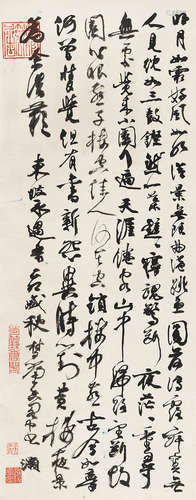 明月如霜好風如水清景無限曲港跳魚圓荷瀉露寂寞無
人見紞如三鼓鏗然一葉黯黯夢雲驚斷夜茫茫重尋
無處覺來小園行遍天涯倦客山中歸路望斷故
園心眼燕子樓空佳人何在空鎖樓中燕古今如夢
何曾夢覺但有舊歡新怨異時對黃樓夜景
為余浩歎
東坡永遇樂